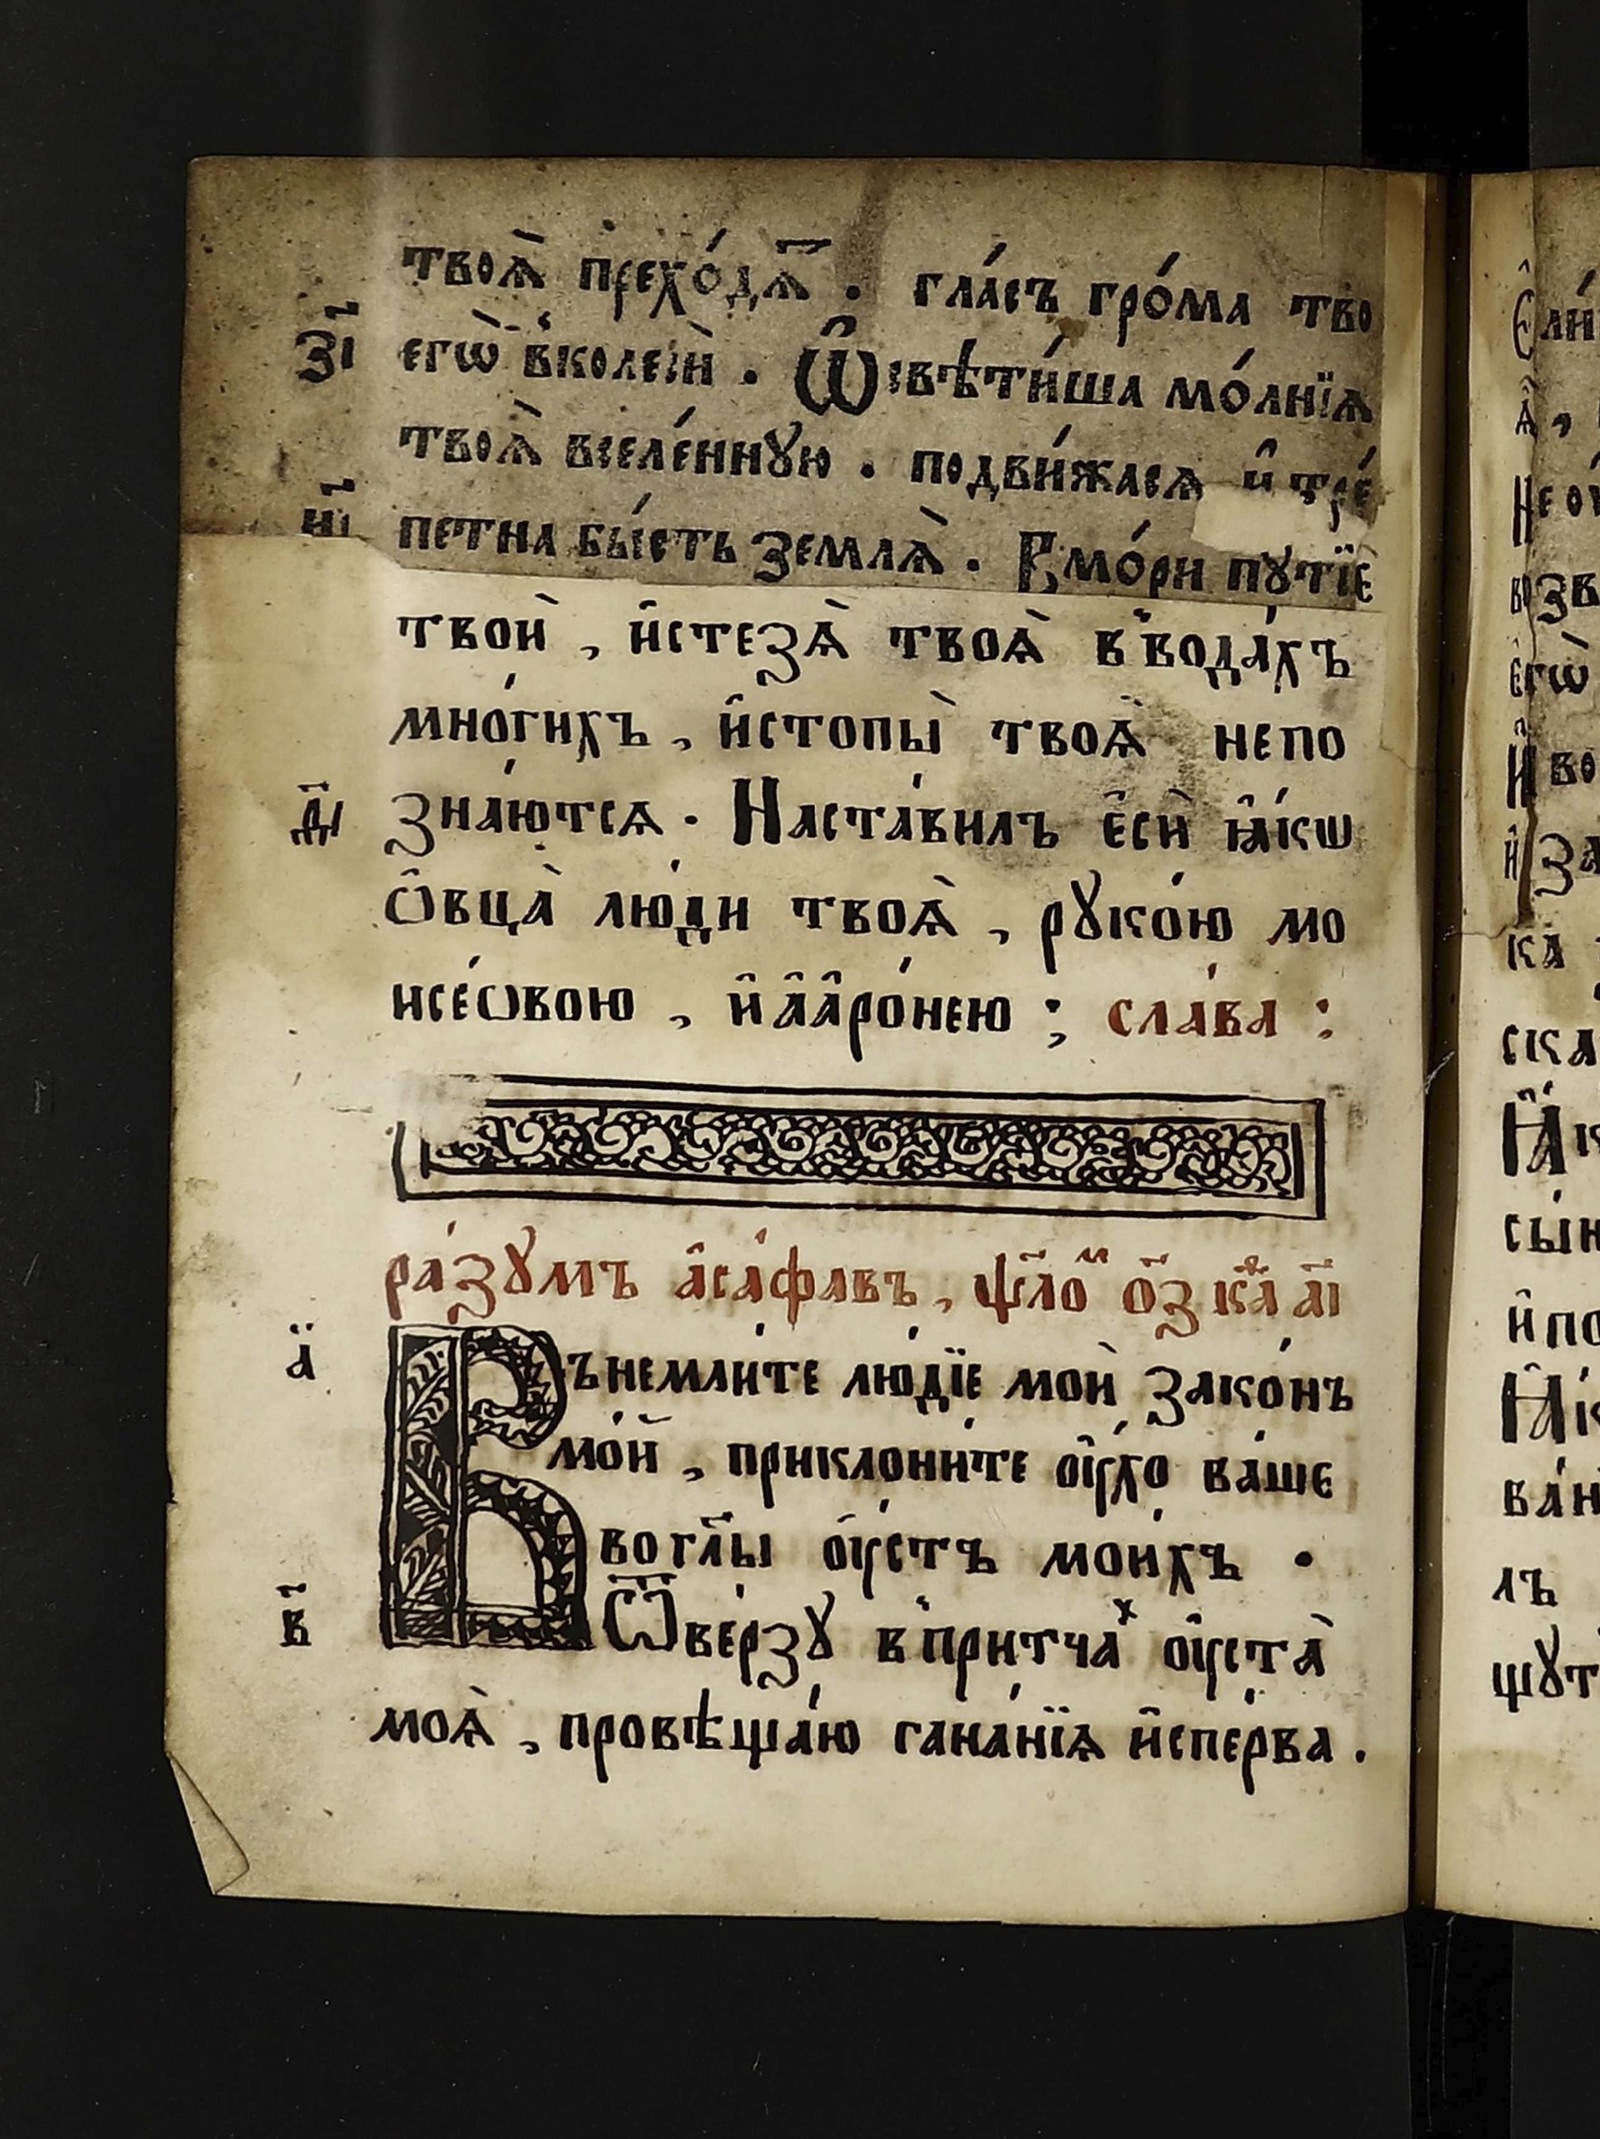 твоѧ̀ прехо́дѧ҃ . гла́съ гро́ма тво
з҃і егѡ̀ в̾колеси̑ . Ѿсвѣти́ша мо́лнїѧ
твоѧ̀ вселе́ннꙋю . подви́жасѧ и҆ тре́
и҃і петна бы́сть землѧ̀ . В̾мо́ри пꙋтїе
твои̏ , и҆стезѧ̀ твоѧ̀ в̾вода́хъ
мно́гихъ , и҆стопы̀ твоѧ̀ непо
д҃і зна́ютсѧ . Наста́вилъ є҆сѝ ꙗ҆́кѡ
ѻ҆вца̀ лю́ди твоѧ̀ , рꙋко́ю мо
исе́ѻвою , и҆а҆а҆ро́нею ; сла́ва :
ра́зꙋмъ а҆са́фавъ , ѱ҃ло́ⷨ о҃з кⷲ҇а а҃і
а҃ Вънемли́те лю́дїе моѝ зако́нъ
мо́й , приклони́те ᲂу҆́хо ва́ше
вогл҃ы ᲂу҆́стъ мои́хъ .
в҃ Ѿве́рзꙋ в̾при́тчаⷯ ᲂу҆ста̀
моѧ̀ , провѣща́ю гана́нїѧ и҆спе́рва .